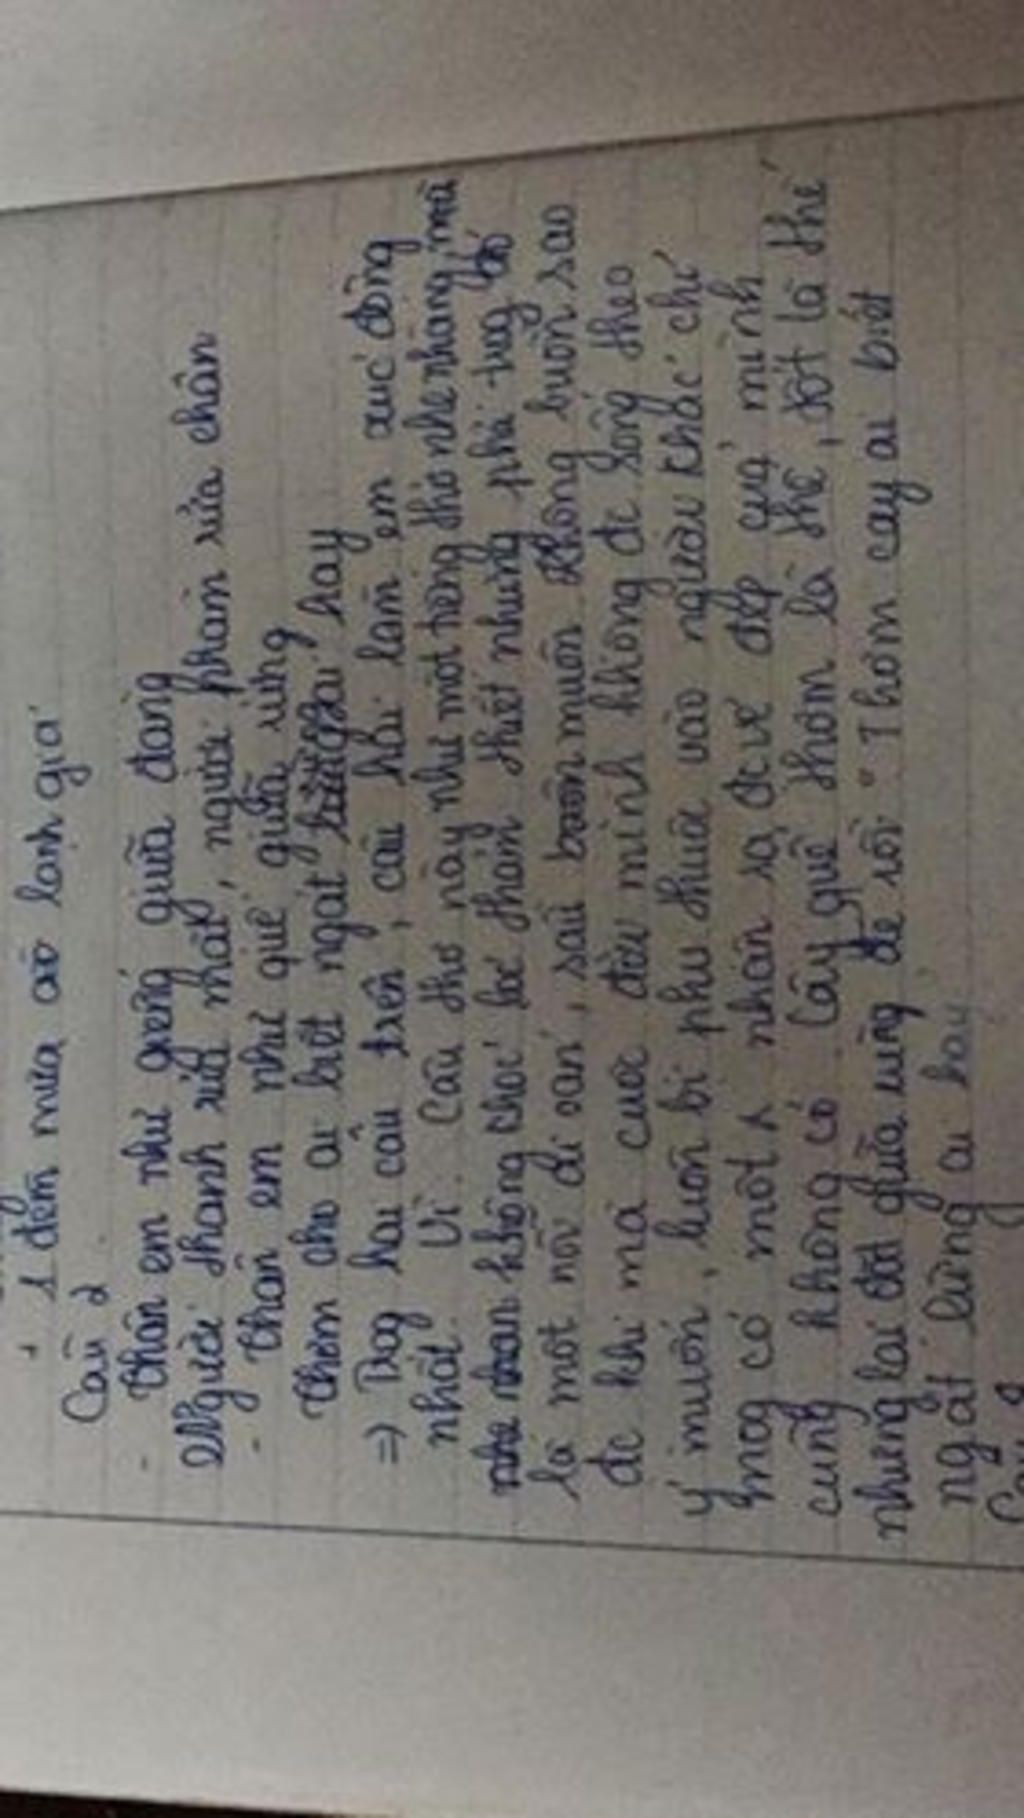 1 đêm mưa ao lạnh giá
Câu 2
- Thân em như giếng giữa đàng
Người thanh rửa mặt, người phàm rửa chân
- Thân em như quế giữa rừng
Thơm cho ai biết ngát hay
=> Trog hai câu trên, câu hai làm em xúc động
nhất. Vì. Câu thơ này như một tiếng thơ nhẹ nhàng mà
không chớc lé thấm thiết nhưng phi tuy đó
là một nỗi ai oán, sao muốn không buồn sao
đc khi mà cuộc đời mình không đc sống theo
ý muốn, luôn bị phụ thuộc vào người khác chỉ
mog có một nhan sạ đc vẻ đẹp cuả mình
cũng không có. Cây quế thơm là thế, tốt là thế
nhưng lại đặt giữa rừng để rồi "Thơm cay ai biết
ngát lừng ai hay